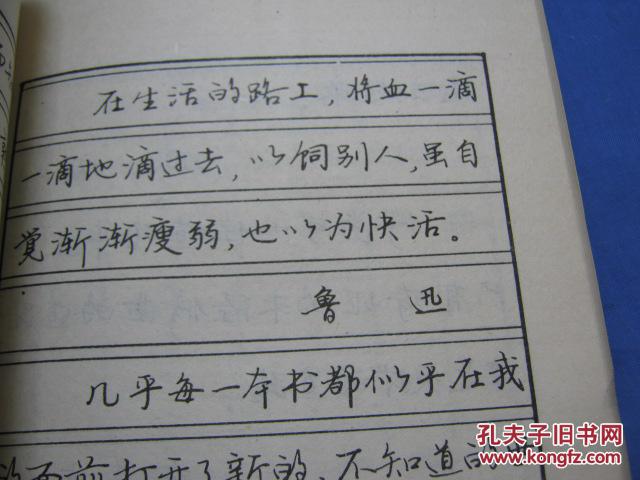 在生活的路上，将血一滴
一滴地滴过去，以饲别人，虽自
觉渐渐瘦弱，也以为快活。
鲁 迅
几乎每一本书都似乎在我
的面前打开了新的、不知道的
孔夫子旧书网
www.kongfz.com